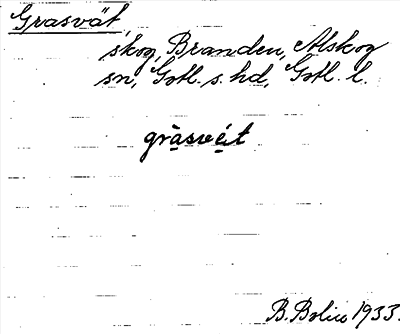 Grasvät,
skog, Branden, Alskog
sn, Gotl. s. hd, Gotl. l.
gràsvéit
B. Bolin 1933.